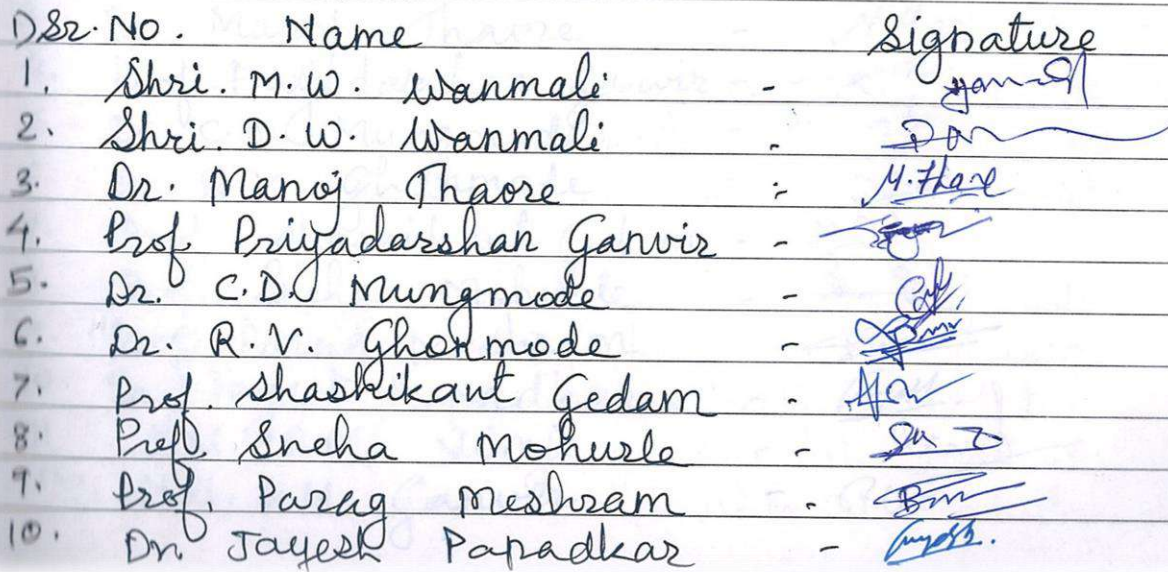 Sr. No. Name Signature
1. Shri. M.W. Wanmali -
2. Shri. D.W. Wanmali -
3. Dr. Manoj Thaore - M. Thaore
4. Prof Priyadarshan Ganvir -
5. Dr. C.D. Mungmode -
6. Dr. R.V. Ghonmode -
7. Prof. Shashikant Gedam -
8. Prof. Sneha Mohurle -
9. Prof. Parag Meshram -
10. Dr. Jayesh Papadkar -